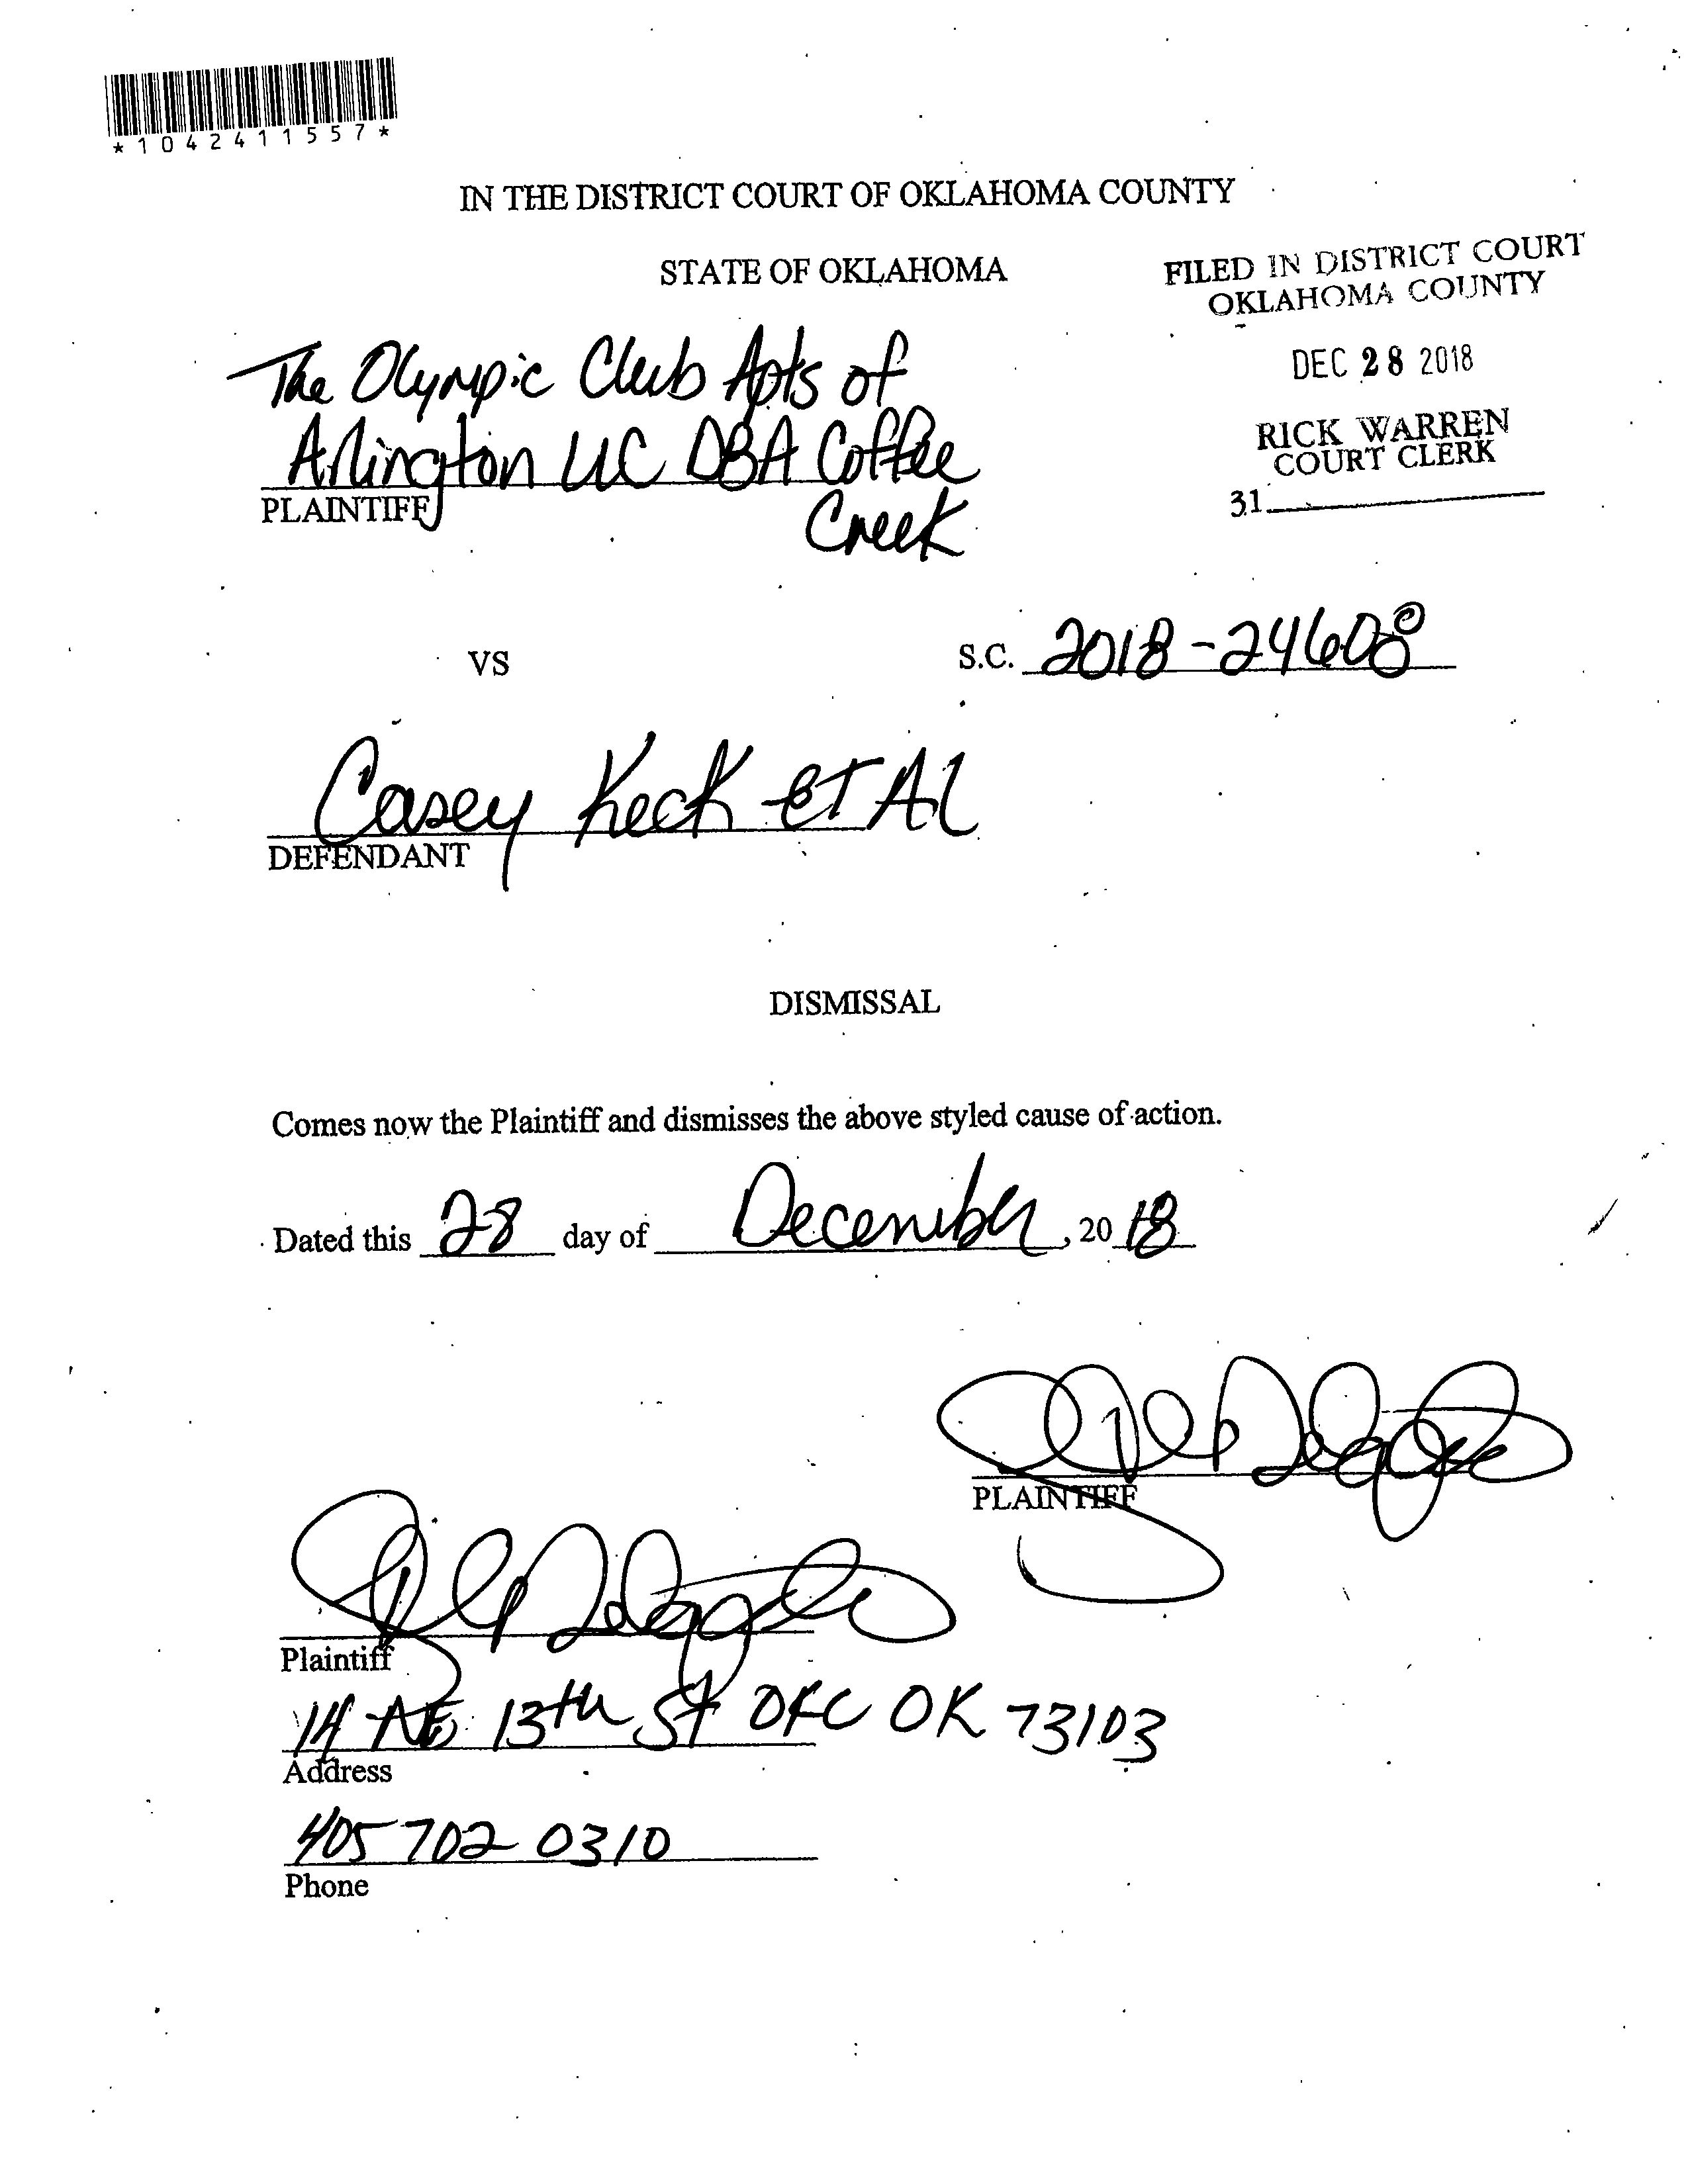 *1042411557*
IN THE DISTRICT COURT OF OKLAHOMA COUNTY
STATE OF OKLAHOMA
FILED IN DISTRICT COURT
OKLAHOMA COUNTY
DEC 28 2018
RICK WARREN
COURT CLERK
31
The Olympic Club Apts of
Arlington LLC DBA Coffee
Creek
PLAINTIFF
VS
S.C. 2018-24608
Casey Keck et Al
DEFENDANT
DISMISSAL
Comes now the Plaintiff and dismisses the above styled cause of action.
Dated this 28 day of December, 20 18
PLAINTIFF
Plaintiff
14 NE 13th St OKC OK 73103
Address
405 702 0310
Phone